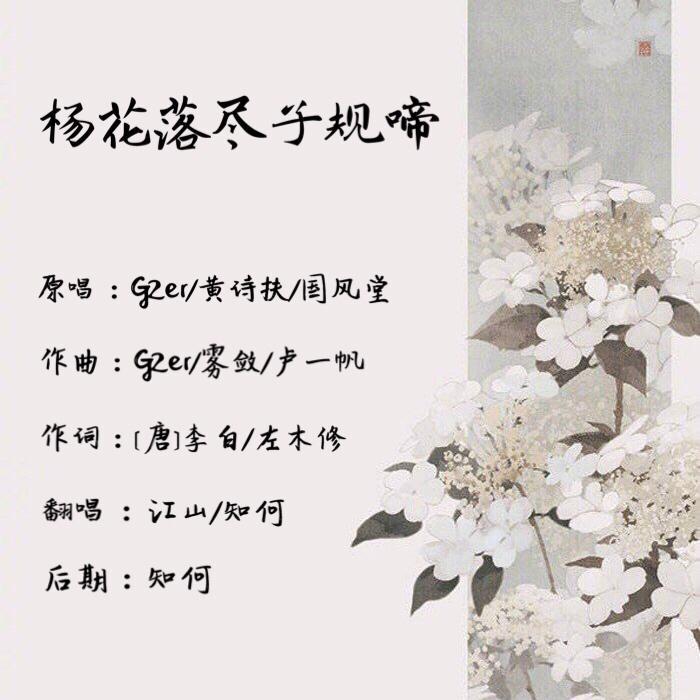 杨花落尽子规啼
原唱：G2er/黄诗扶/国风堂
作曲：G2er/雾敛/卢一帆
作词：[唐]李白/左木修
翻唱：江山/知何
后期：知何